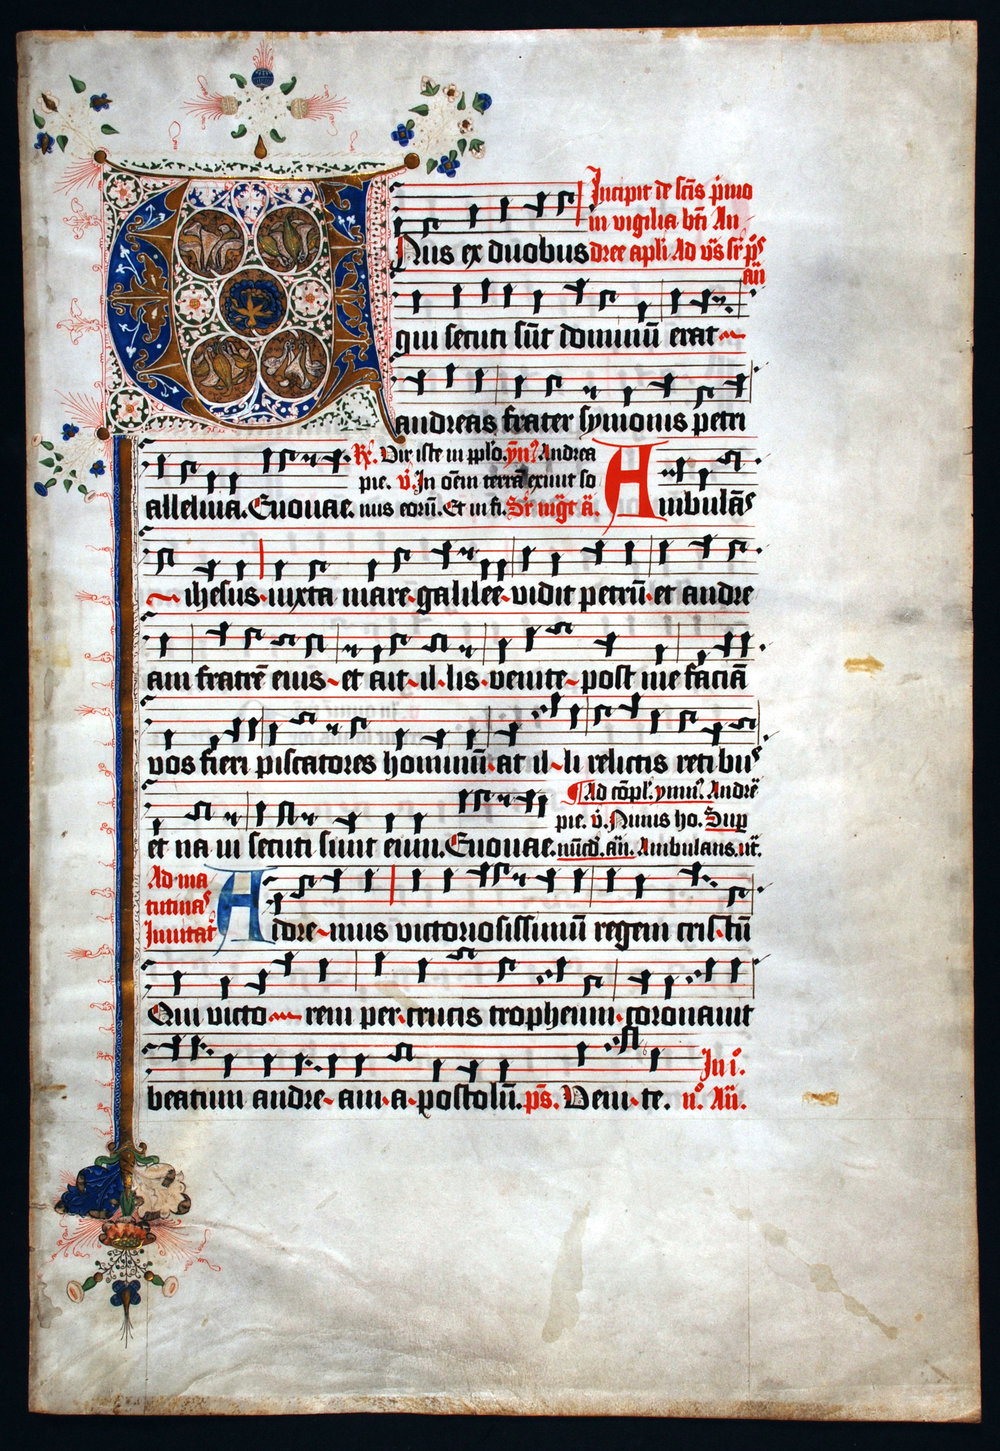 Incipit de scīs pͥmo
in vigilia btī An
Unus ex duobus dree apli Ad vs̄ sr̄ ps̄
an̄
qui secuti sūt dominū erat
andreas frater symonis petri
R. Vir iste in pplo. yn̄. Andrea
pie. v. In oēm terrā exiuit so
alleluia. Euouae. nus eorū. Et in fi. Sr̄ mḡt a. Ambulās
ihesus iuxta mare galilee vidit petrū et andre
am fratrē eius et ait il lis venite post me faciā
vos fieri piscatores hominū at il li relictis retibus
Ad cōpl. ymn. Andree
pie. v. Nimis ho. Sup
et na ui secuti sunt eum. Euouae. nūcd. an̄. Ambulans. ut̄.
Ad ma
tutinas
Inuitat̄ Adore mus victoriosissimū regem cris tū
Qui victo rem per crucis tropheum coronauit
In i.
beatum andre am a postolū. ps̄. Veni te. n. An̄.